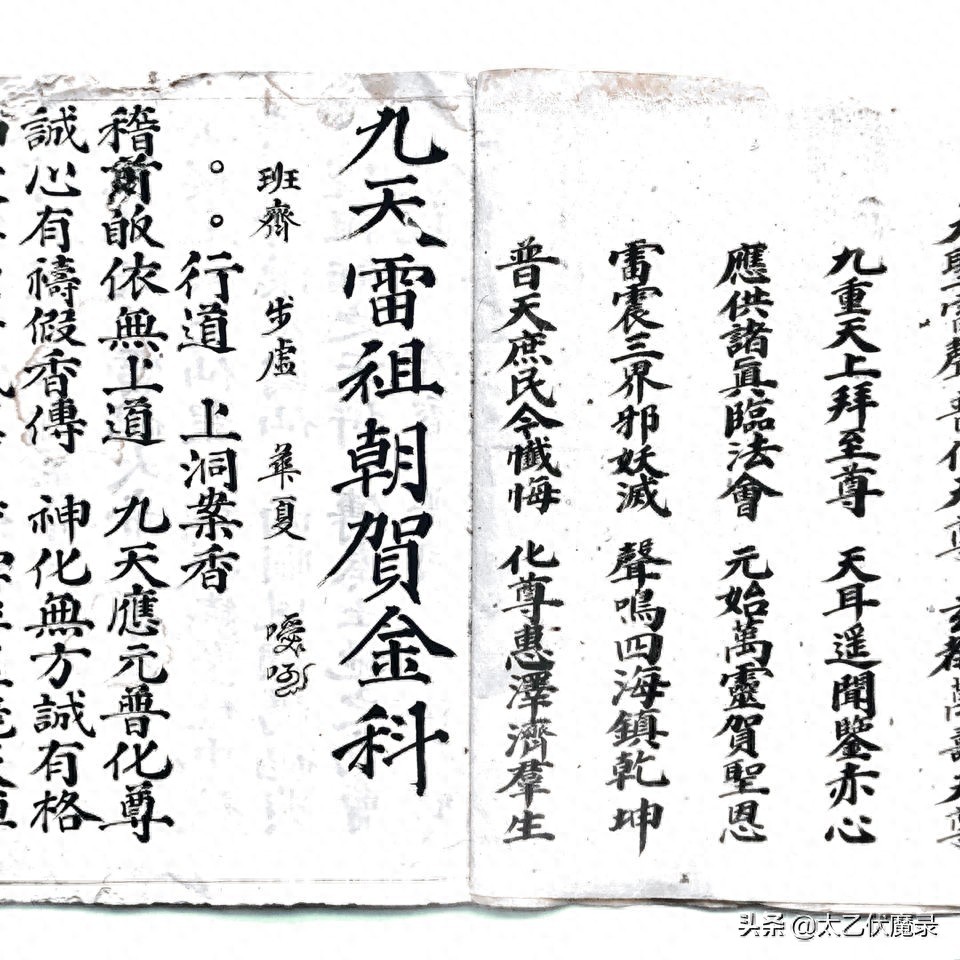 雷聲普化天尊 玄都萬壽天尊
九重天上拜至尊 天耳遥聞鑒赤心
應供諸眞臨法會 元始萬靈賀聖恩
雷震三界邪妖滅 聲鳴四海鎮乾坤
普天庶民令懺悔 化尊惠澤濟羣生
九天雷祖朝賀金科
班齊 步虛 華夏
。。行道 上洞案香
稽首皈依無上道 九天應元普化尊
誠心有禱假香傳 神化無方誠有格
头条 @太乙伏魔录